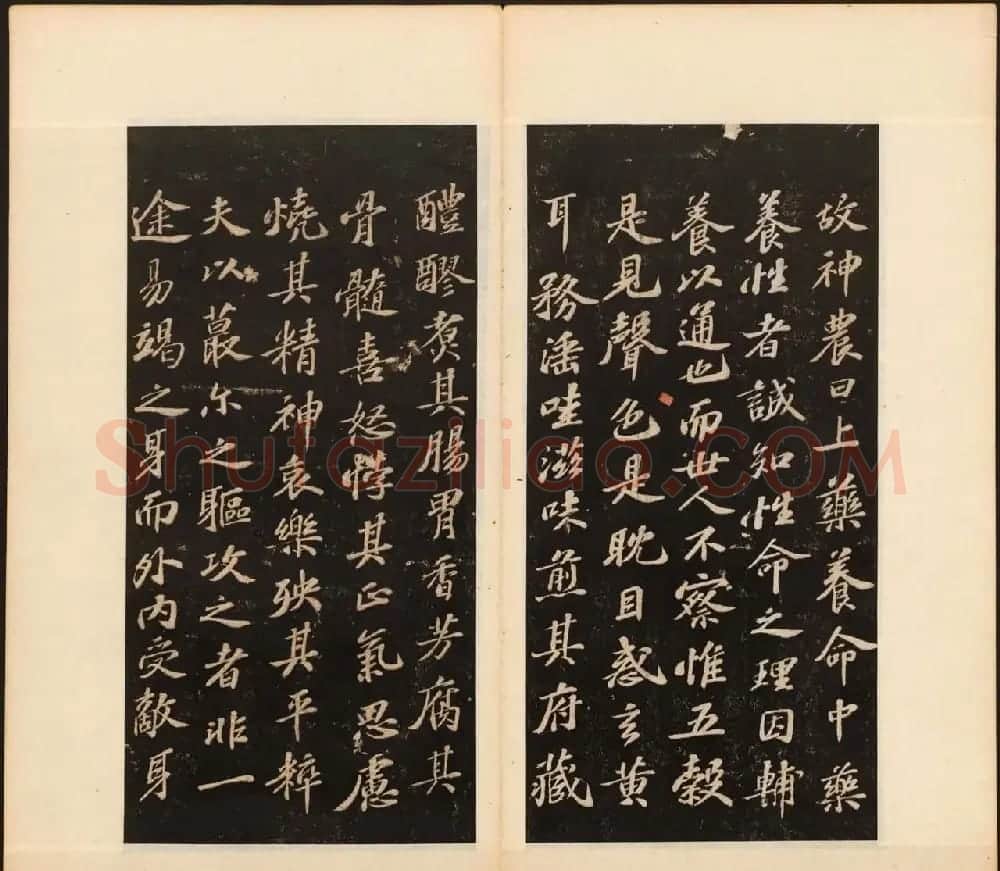 故神農曰上藥養命中藥
養性者誠知性命之理因輔
養以通也而世人不察惟五穀
是見聲色是耽目惑玄黃
耳務滛哇滋味煎其府藏
醴醪煑其腸胃香芳腐其
骨髓喜怒悖其正氣思慮
燒其精神哀樂殃其平粹
夫以蕞尓之軀攻之者非一
途易竭之身而外內受敵身
Shufaziliao.COM